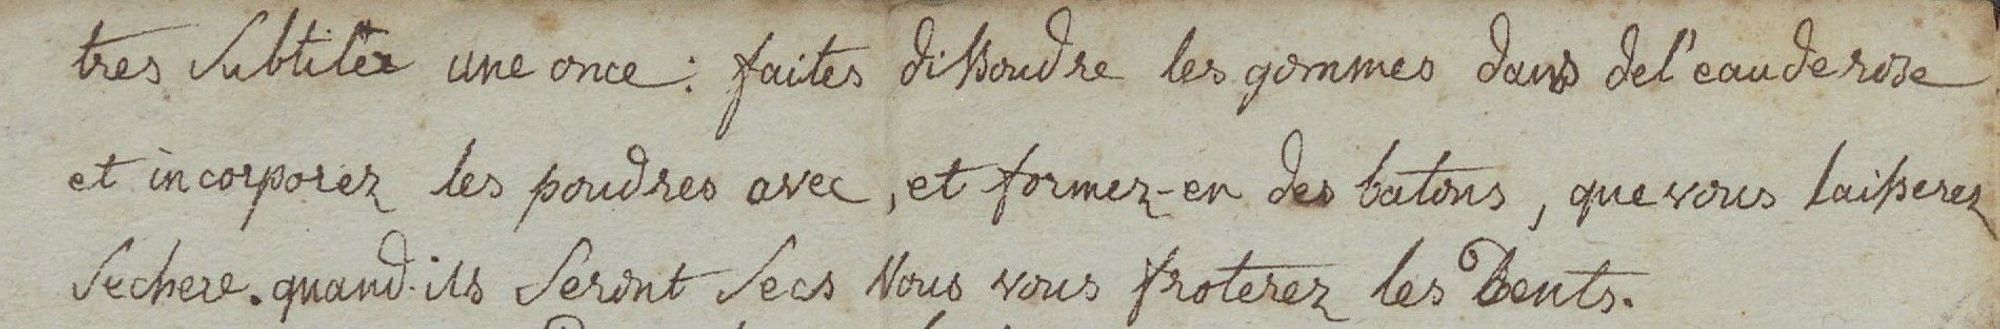 tres subtile une once: faites dissoudre les gommes dans de l'eau de rose
et incorporez les poudres avec, et formez-en des batons, que vous laisserez
sechere. quand-ils seront secs vous vous froterez les Dents.